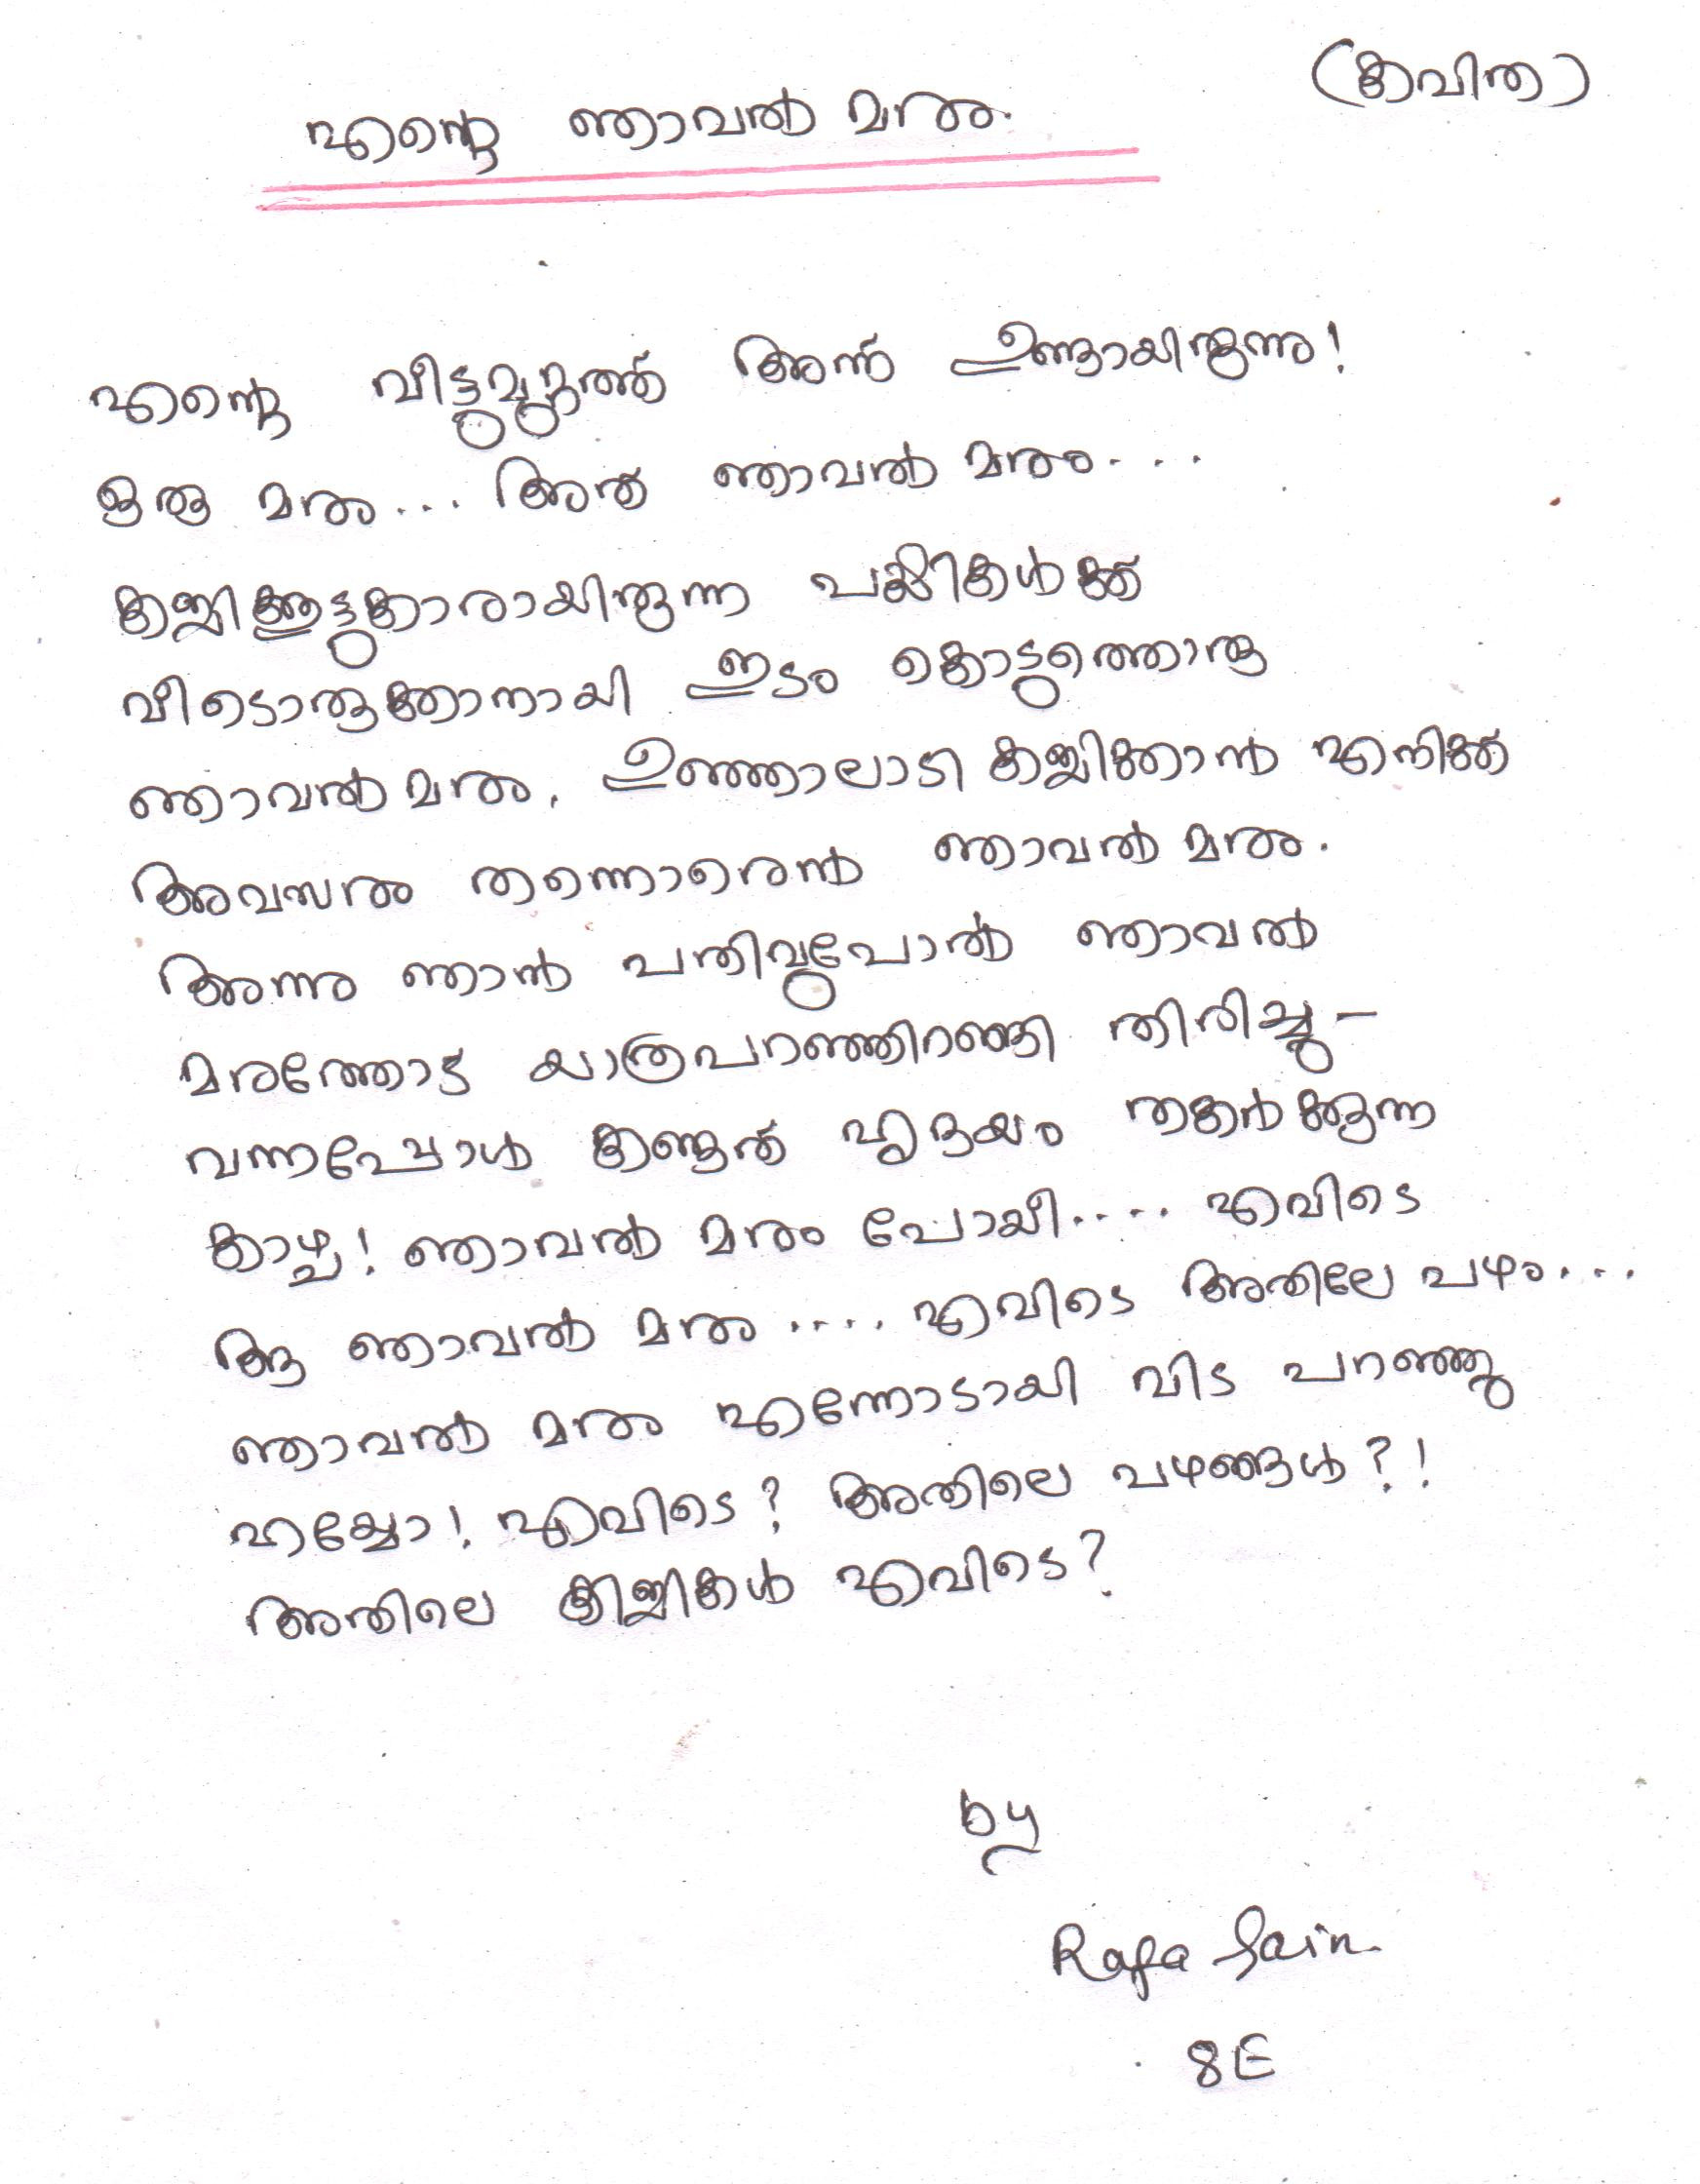 (കവിത)
എന്റെ ഞാവൽ മരം.
എന്റെ വീട്ടുമുറ്റത്ത് അന്ന് ഉണ്ടായിരുന്നു!
ഒരു മരം... അത് ഞാവൽ മരം...
കളിക്കൂട്ടുകാരായിരുന്ന പക്ഷികൾക്ക്
വീടൊരുക്കാനായി ഇടം കൊടുത്തൊരു
ഞാവൽ മരം. ഉഞ്ഞാലാടി കളിക്കാൻ എനിക്ക്
അവസരം തന്നൊരെൻ ഞാവൽ മരം.
അന്നു ഞാൻ പതിവുപോൽ ഞാവൽ
മരത്തോട് യാത്രപറഞ്ഞിറങ്ങി തിരിച്ചു-
വന്നപ്പോൾ കണ്ടത് ഹൃദയം തകർക്കുന്ന
കാഴ്ച! ഞാവൽ മരം പോയീ.... എവിടെ
ആ ഞാവൽ മരം .... എവിടെ അതിലേ പഴം...
ഞാവൽ മരം എന്നോടായി വിട പറഞ്ഞു
ഹയ്യോ! എവിടെ? അതിലെ പഴങ്ങൾ?!
അതിലെ കിളികൾ എവിടെ?
by
Rafa Sain
8E